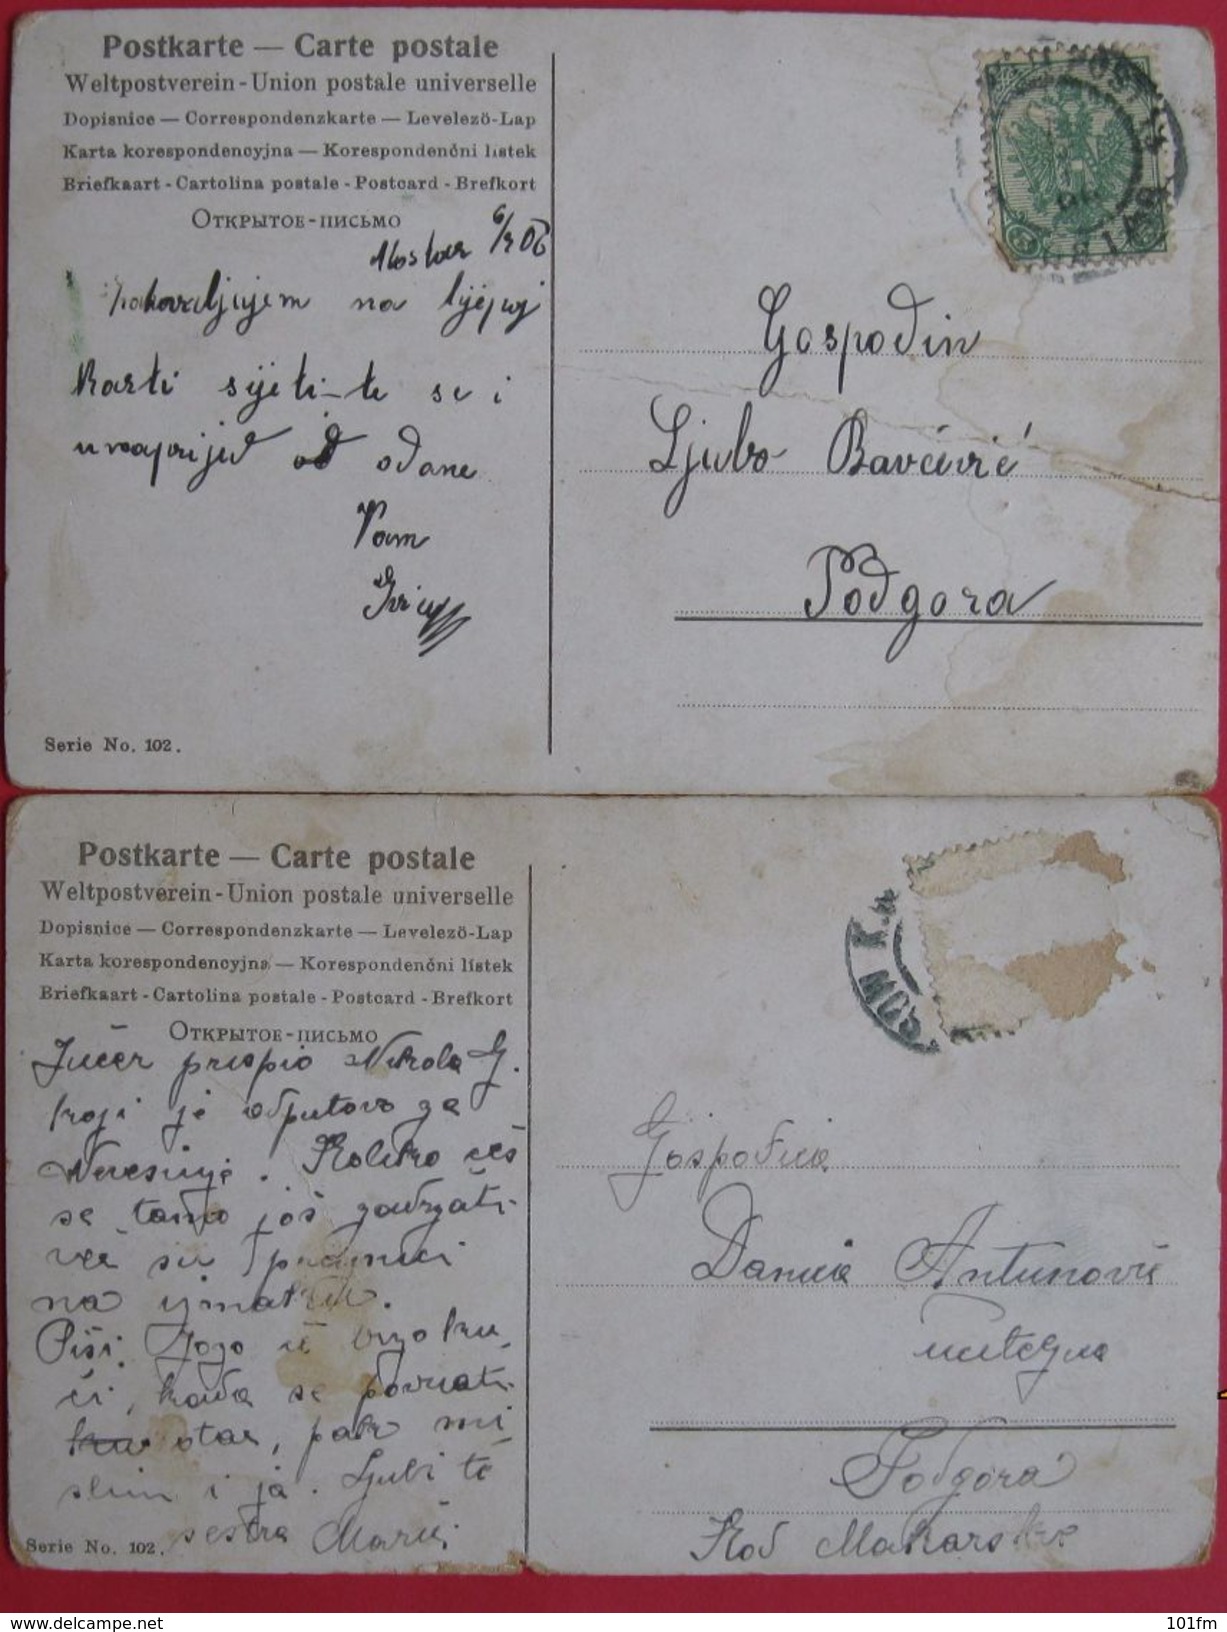 Postkarte — Carte postale
Weltpostverein - Union postale universelle
Dopisnice — Correspondenzkarte — Levelező-Lap
Karta korespondencyjna — Korespondenční lístek
Briefkaart - Cartolina postale - Postcard - Brefkort
Открытое-письмо
Mostar 6/2 06
na lijepoj
karti sjeti-te se i
unaprijed odane
Vam
Gospodin
Ljubo Bavčević
Podgora
Serie No. 102.
Postkarte — Carte postale
Weltpostverein - Union postale universelle
Dopisnice — Correspondenzkarte — Levelező-Lap
Karta korespondencyjna — Korespondenční lístek
Briefkaart - Cartolina postale - Postcard - Brefkort
Открытое-письмо
Jučer prispio Nikola G.
koji je odputovo za
Nevesinje. Koliko ćeš
se tamo još zadržati
već su praznici
na izmaku.
Piši. Jozo će brzo ku
ći, kada se povrati
otac, pak mi
slim i ja. Ljubi te
sestra Marić
Gospodica
Danica Antunović
učiteljica
Podgora
Kod Makarske
Serie No. 102.
delcampe.net
101fm